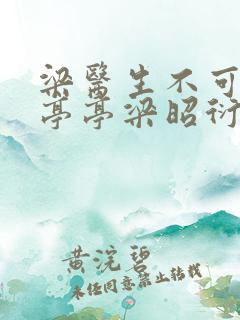 梁醫生不可
亭亭梁昭衍
黄浣碧
未经同意禁止转载